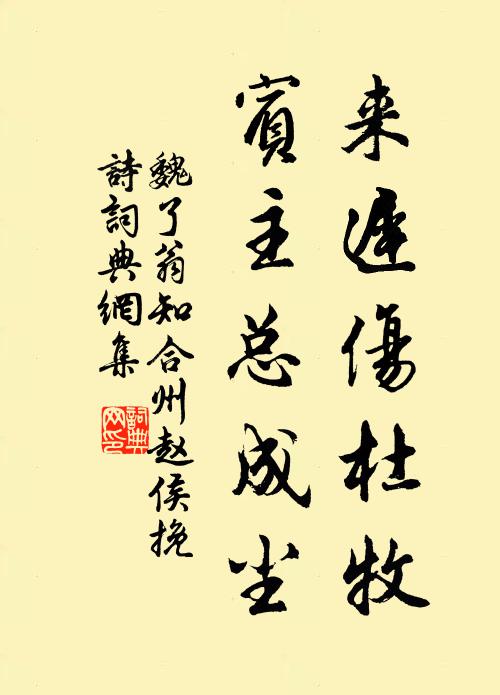 来遲傷杜牧
賓主总成尘
魏了翁知合州赵侯挽
詩詞典網集
詞典网印